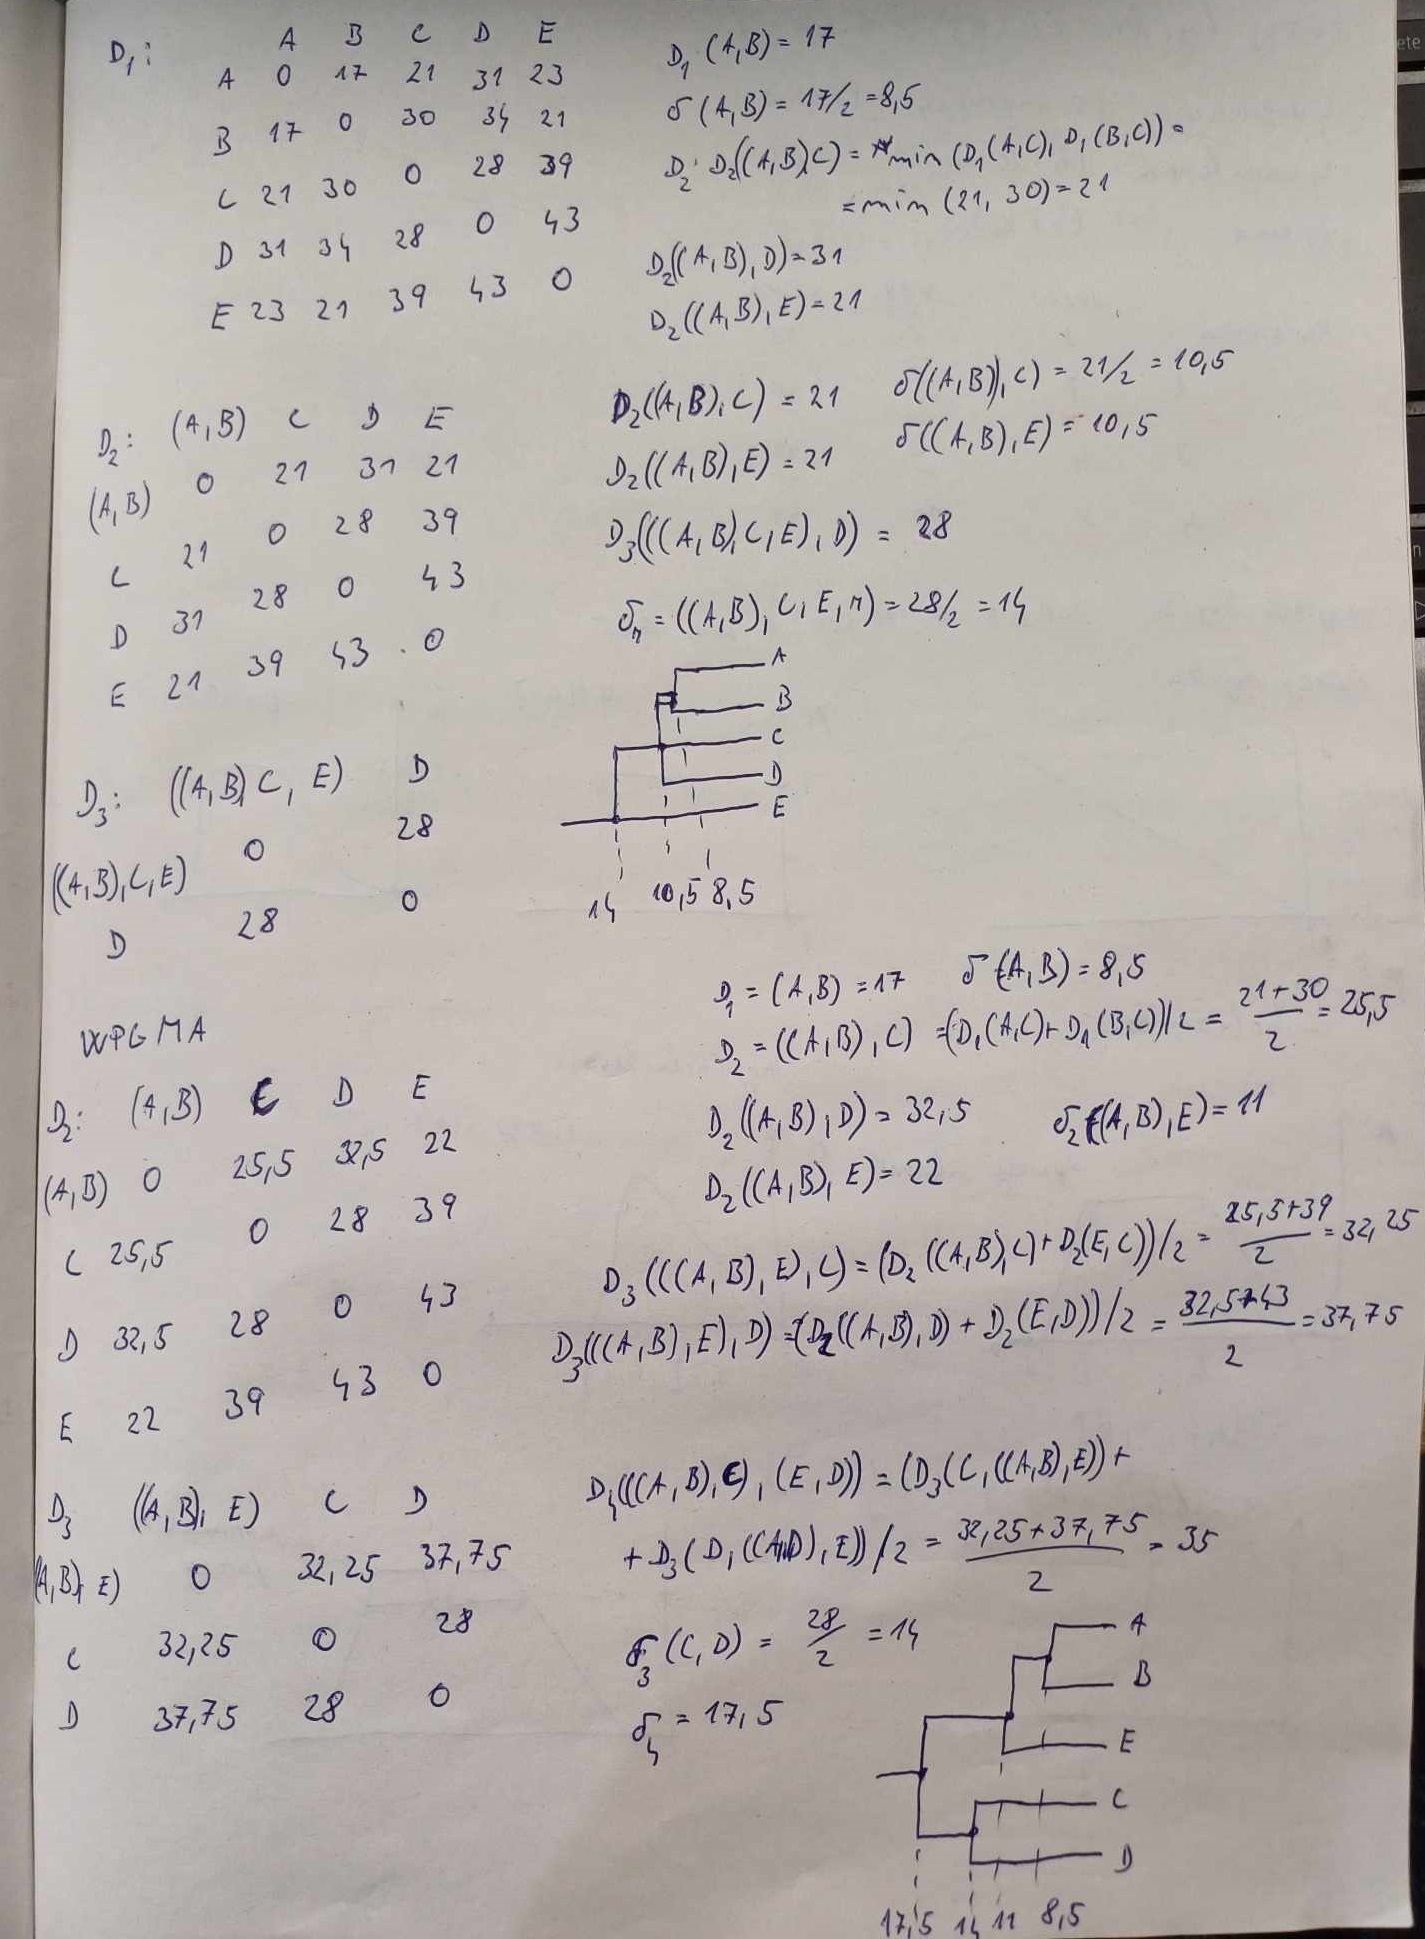 D₁:
A B C D E
A 0 17 21 31 23
B 17 0 30 34 21
C 21 30 0 28 39
D 31 34 28 0 43
E 23 21 39 43 0
D₁ (A,B) = 17
δ (A,B) = 17/2 = 8,5
D₂: D₂((A,B),C) = min (D₁(A,C), D₁(B,C)) =
= min (21, 30) = 21
D₂((A,B), D) = 31
D₂((A,B), E) = 21
D₂: (A,B) C D E
(A,B) 0 21 31 21
C 21 0 28 39
D 31 28 0 43
E 21 39 43 0
D₂((A,B),C) = 21 δ((A,B),C) = 21/2 = 10,5
D₂((A,B),E) = 21 δ((A,B),E) = 10,5
D₃(((A,B),C,E), D) = 28
δᵣ = ((A,B), C, E, r) = 28/2 = 14
A
B
C
D
E
14 10,5 8,5
D₃: ((A,B) C, E) D
((A,B),C,E) 0 28
D 28 0
WPGMA
D₁ = (A,B) = 17 δ (A,B) = 8,5
D₂ = ((A,B), C) = (D₁(A,C) + D₁(B,C))/2 = 21+30/2 = 25,5
D₂((A,B), D) = 32,5 δ₂((A,B), E) = 11
D₂((A,B), E) = 22
D₃(((A,B), E), C) = (D₂((A,B),C) + D₂(E,C))/2 = 25,5+39/2 = 32,25
D₃(((A,B), E), D) = (D₂((A,B),D) + D₂(E,D))/2 = 32,5+43/2 = 37,75
D₂: (A,B) C D E
(A,B) 0 25,5 32,5 22
C 25,5 0 28 39
D 32,5 28 0 43
E 22 39 43 0
D₃ ((A,B), E) C D
(A,B), E) 0 32,25 37,75
C 32,25 0 28
D 37,75 28 0
D₄(((A,B),E), (E,D)) = (D₃(C, ((A,B), E)) +
+ D₃(D, ((A,D), E))/2 = 32,25+37,75/2 = 35
δ₃ (C, D) = 28/2 = 14
δ₄ = 17,5
A
B
E
C
D
17,5 14 11 8,5